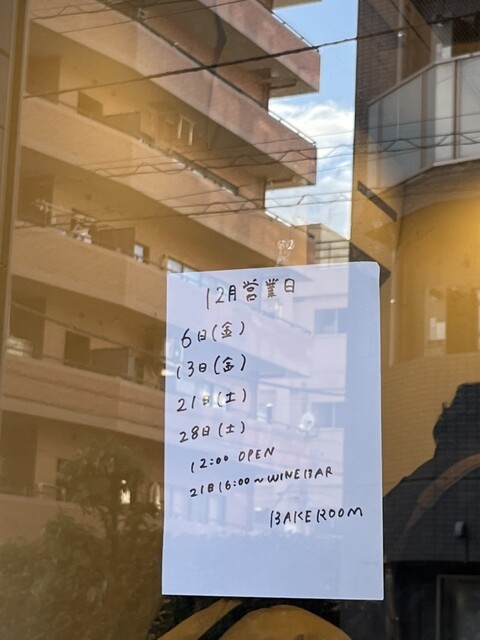 12月営業日
6日(金)
13日(金)
21日(土)
28日(土)
12:00 OPEN
21日16:00〜WINEBAR
BAKEROOM